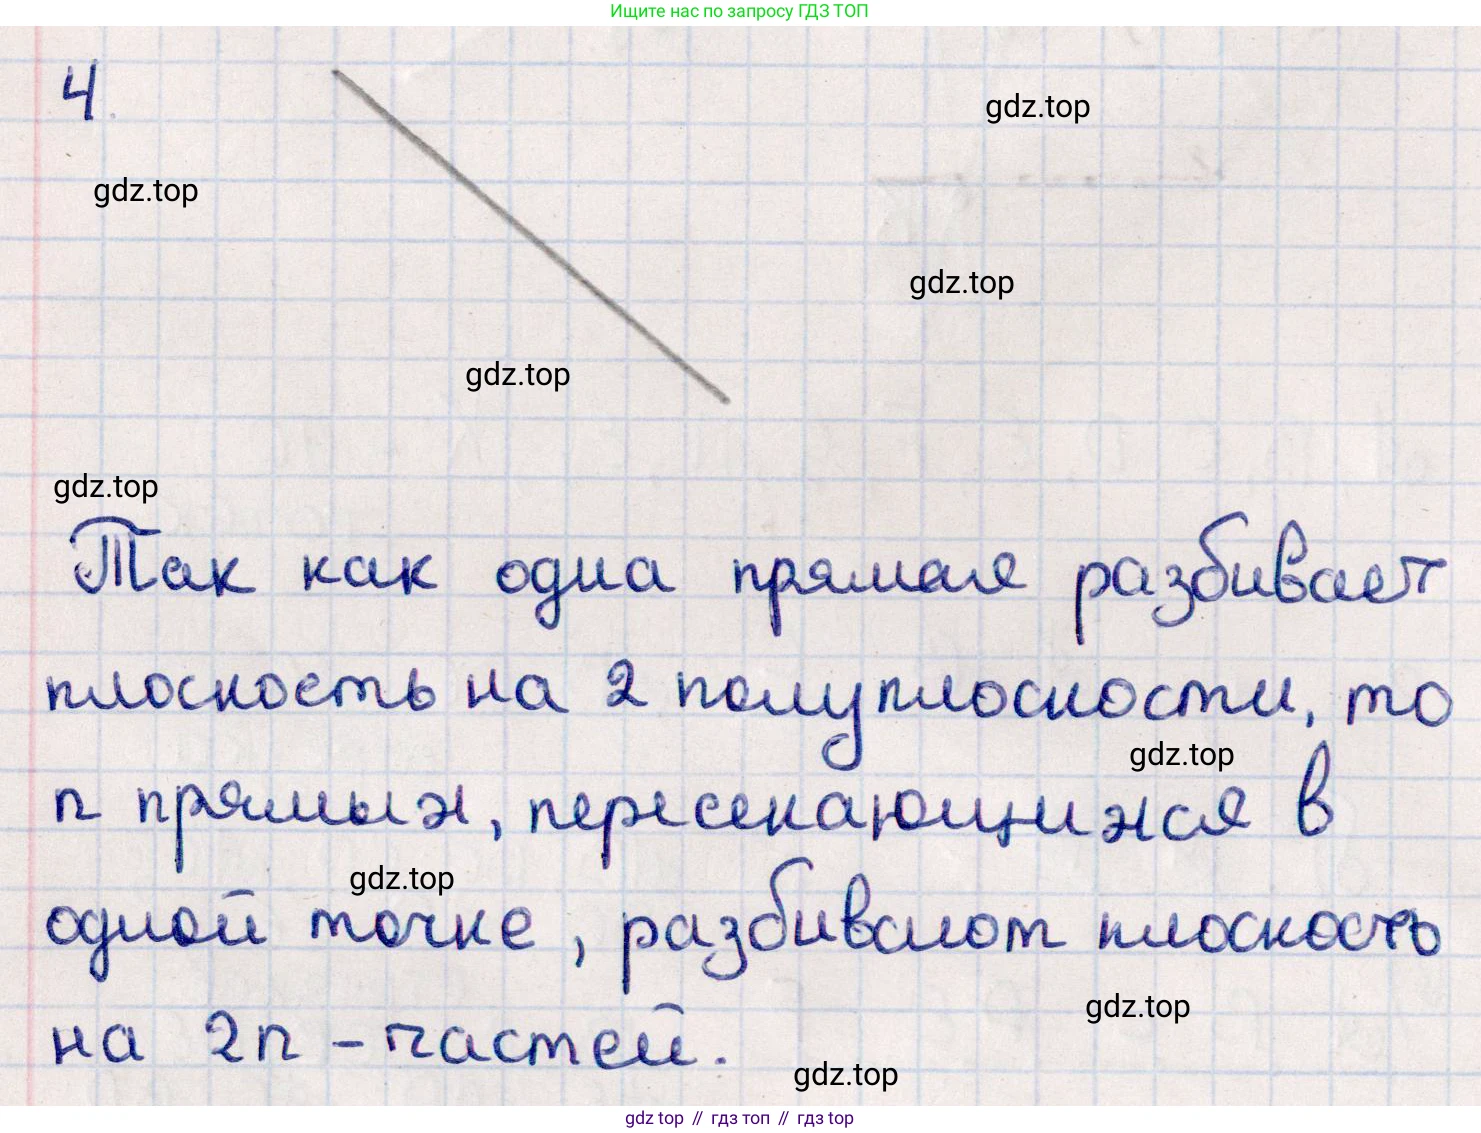 Ищите нас по запросу ГДЗ ТОП
4.
gdz.top
gdz.top
gdz.top
gdz.top
gdz.top
Так как одна прямая разбивает
плоскость на 2 полуплоскости, то
gdz.top
n прямых, пересекающихся в
gdz.top
одной точке, разбивают плоскость
gdz.top
на 2n - частей.
gdz.top
gdz top // гдз топ // гдз top